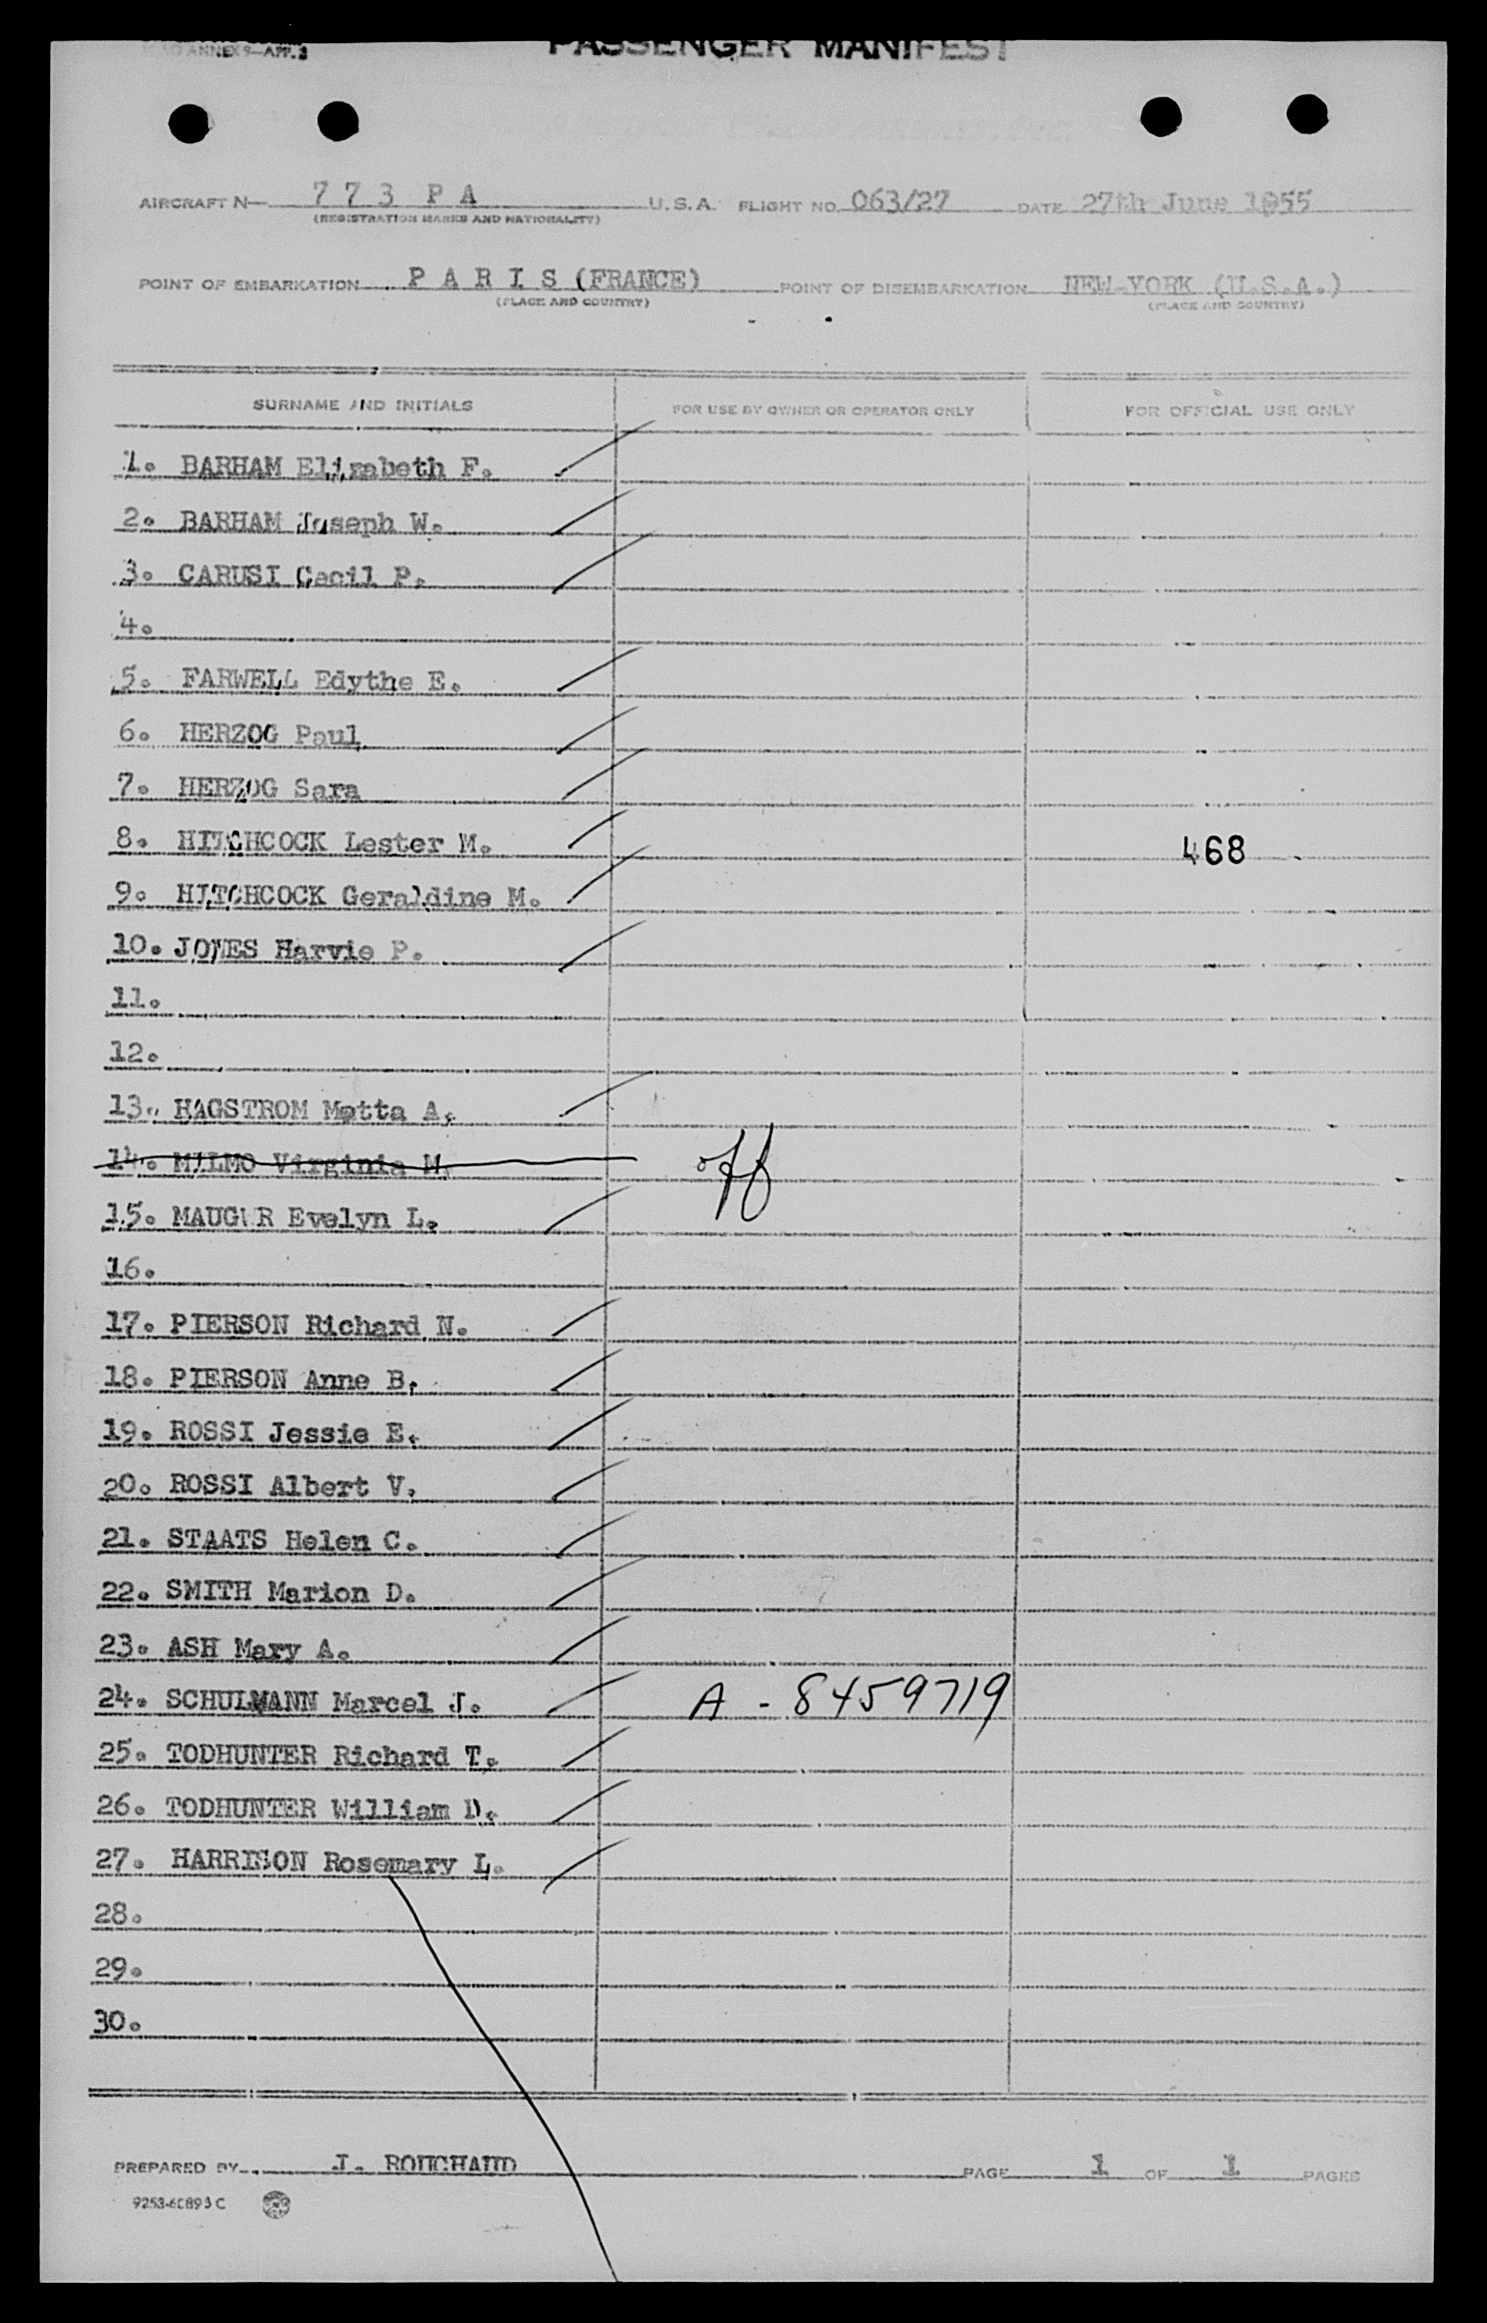 ICAO ANNEX 9—APP. 3
PASSENGER MANIFEST
AIRCRAFT N— 7 7 3 P A U.S.A. FLIGHT NO. 063/27 DATE 27th June 1955
(REGISTRATION MARKS AND NATIONALITY)
POINT OF EMBARKATION P A R I S (FRANCE) POINT OF DISEMBARKATION NEW-YORK (U.S.A.)
(PLACE AND COUNTRY) (PLACE AND COUNTRY)
SURNAME AND INITIALS FOR USE BY OWNER OR OPERATOR ONLY FOR OFFICIAL USE ONLY
1. BARHAM Elizabeth F.
2. BARHAM Joseph W.
3. CARUSI Cecil P.
4.
5. FARWELL Edythe E.
6. HERZOG Paul
7. HERZOG Sara
8. HITCHCOCK Lester M. 468
9. HITCHCOCK Geraldine M.
10. JONES Harvie P.
11.
12.
13. HAGSTROM Metta A.
14. MILMO Virginia M. off
15. MAUGER Evelyn L.
16.
17. PIERSON Richard N.
18. PIERSON Anne B.
19. ROSSI Jessie E.
20. ROSSI Albert V.
21. STAATS Helen C.
22. SMITH Marion D.
23. ASH Mary A.
24. SCHULMANN Marcel J. A - 8459719
25. TODHUNTER Richard T.
26. TODHUNTER William D.
27. HARRISON Rosemary L.
28.
29.
30.
PREPARED BY J. ROUCHAUD PAGE 1 OF 1 PAGES
9253-60893 C